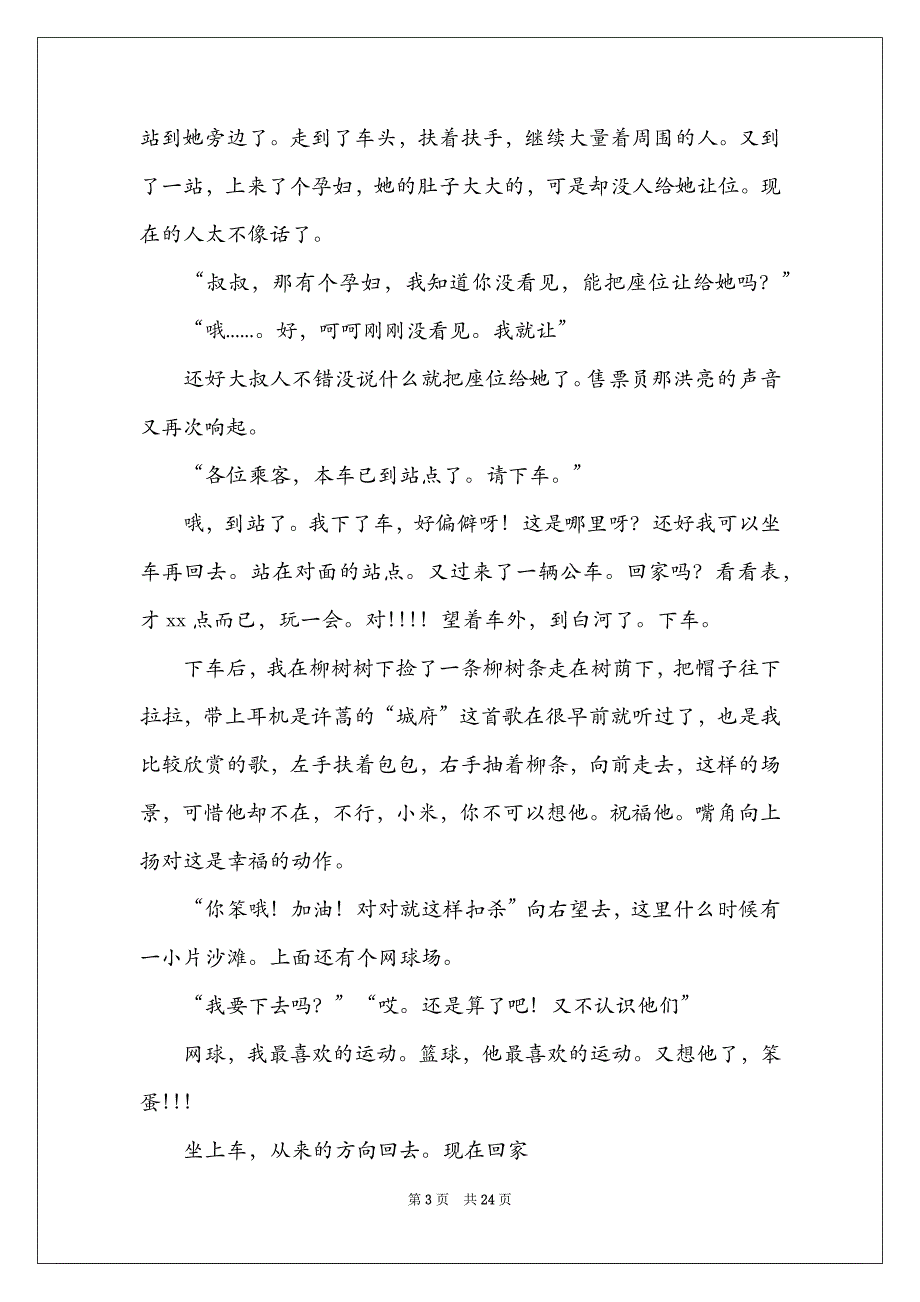 站到她旁边了。走到了车头，扶着扶手，继续大量着周围的人。又到
了一站，上来了个孕妇，她的肚子大大的，可是却没人给她让位。现
在的人太不像话了。
“叔叔，那有个孕妇，我知道你没看见，能把座位让给她吗？”
“哦......。好，呵呵刚刚没看见。我就让”
还好大叔人不错没说什么就把座位给她了。售票员那洪亮的声音
又再次响起。
“各位乘客，本车已到站点了。请下车。”
哦，到站了。我下了车，好偏僻呀！这是哪里呀？还好我可以坐
车再回去。站在对面的站点。又过来了一辆公车。回家吗？看看表，
才 xx 点而已，玩一会。对！！！！望着车外，到白河了。下车。
下车后，我在柳树树下捡了一条柳树条走在树荫下，把帽子往下
拉拉，带上耳机是许蒿的“城府”这首歌在很早前就听过了，也是我
比较欣赏的歌，左手扶着包包，右手抽着柳条，向前走去，这样的场
景，可惜他却不在，不行，小米，你不可以想他。祝福他。嘴角向上
扬对这是幸福的动作。
“你笨哦！加油！对对就这样扣杀”向右望去，这里什么时候有
一小片沙滩。上面还有个网球场。
“我要下去吗？”“哎。还是算了吧！又不认识他们”
网球，我最喜欢的运动。篮球，他最喜欢的运动。又想他了，笨
蛋！！！
坐上车，从来的方向回去。现在回家
第 3 页 共 24 页